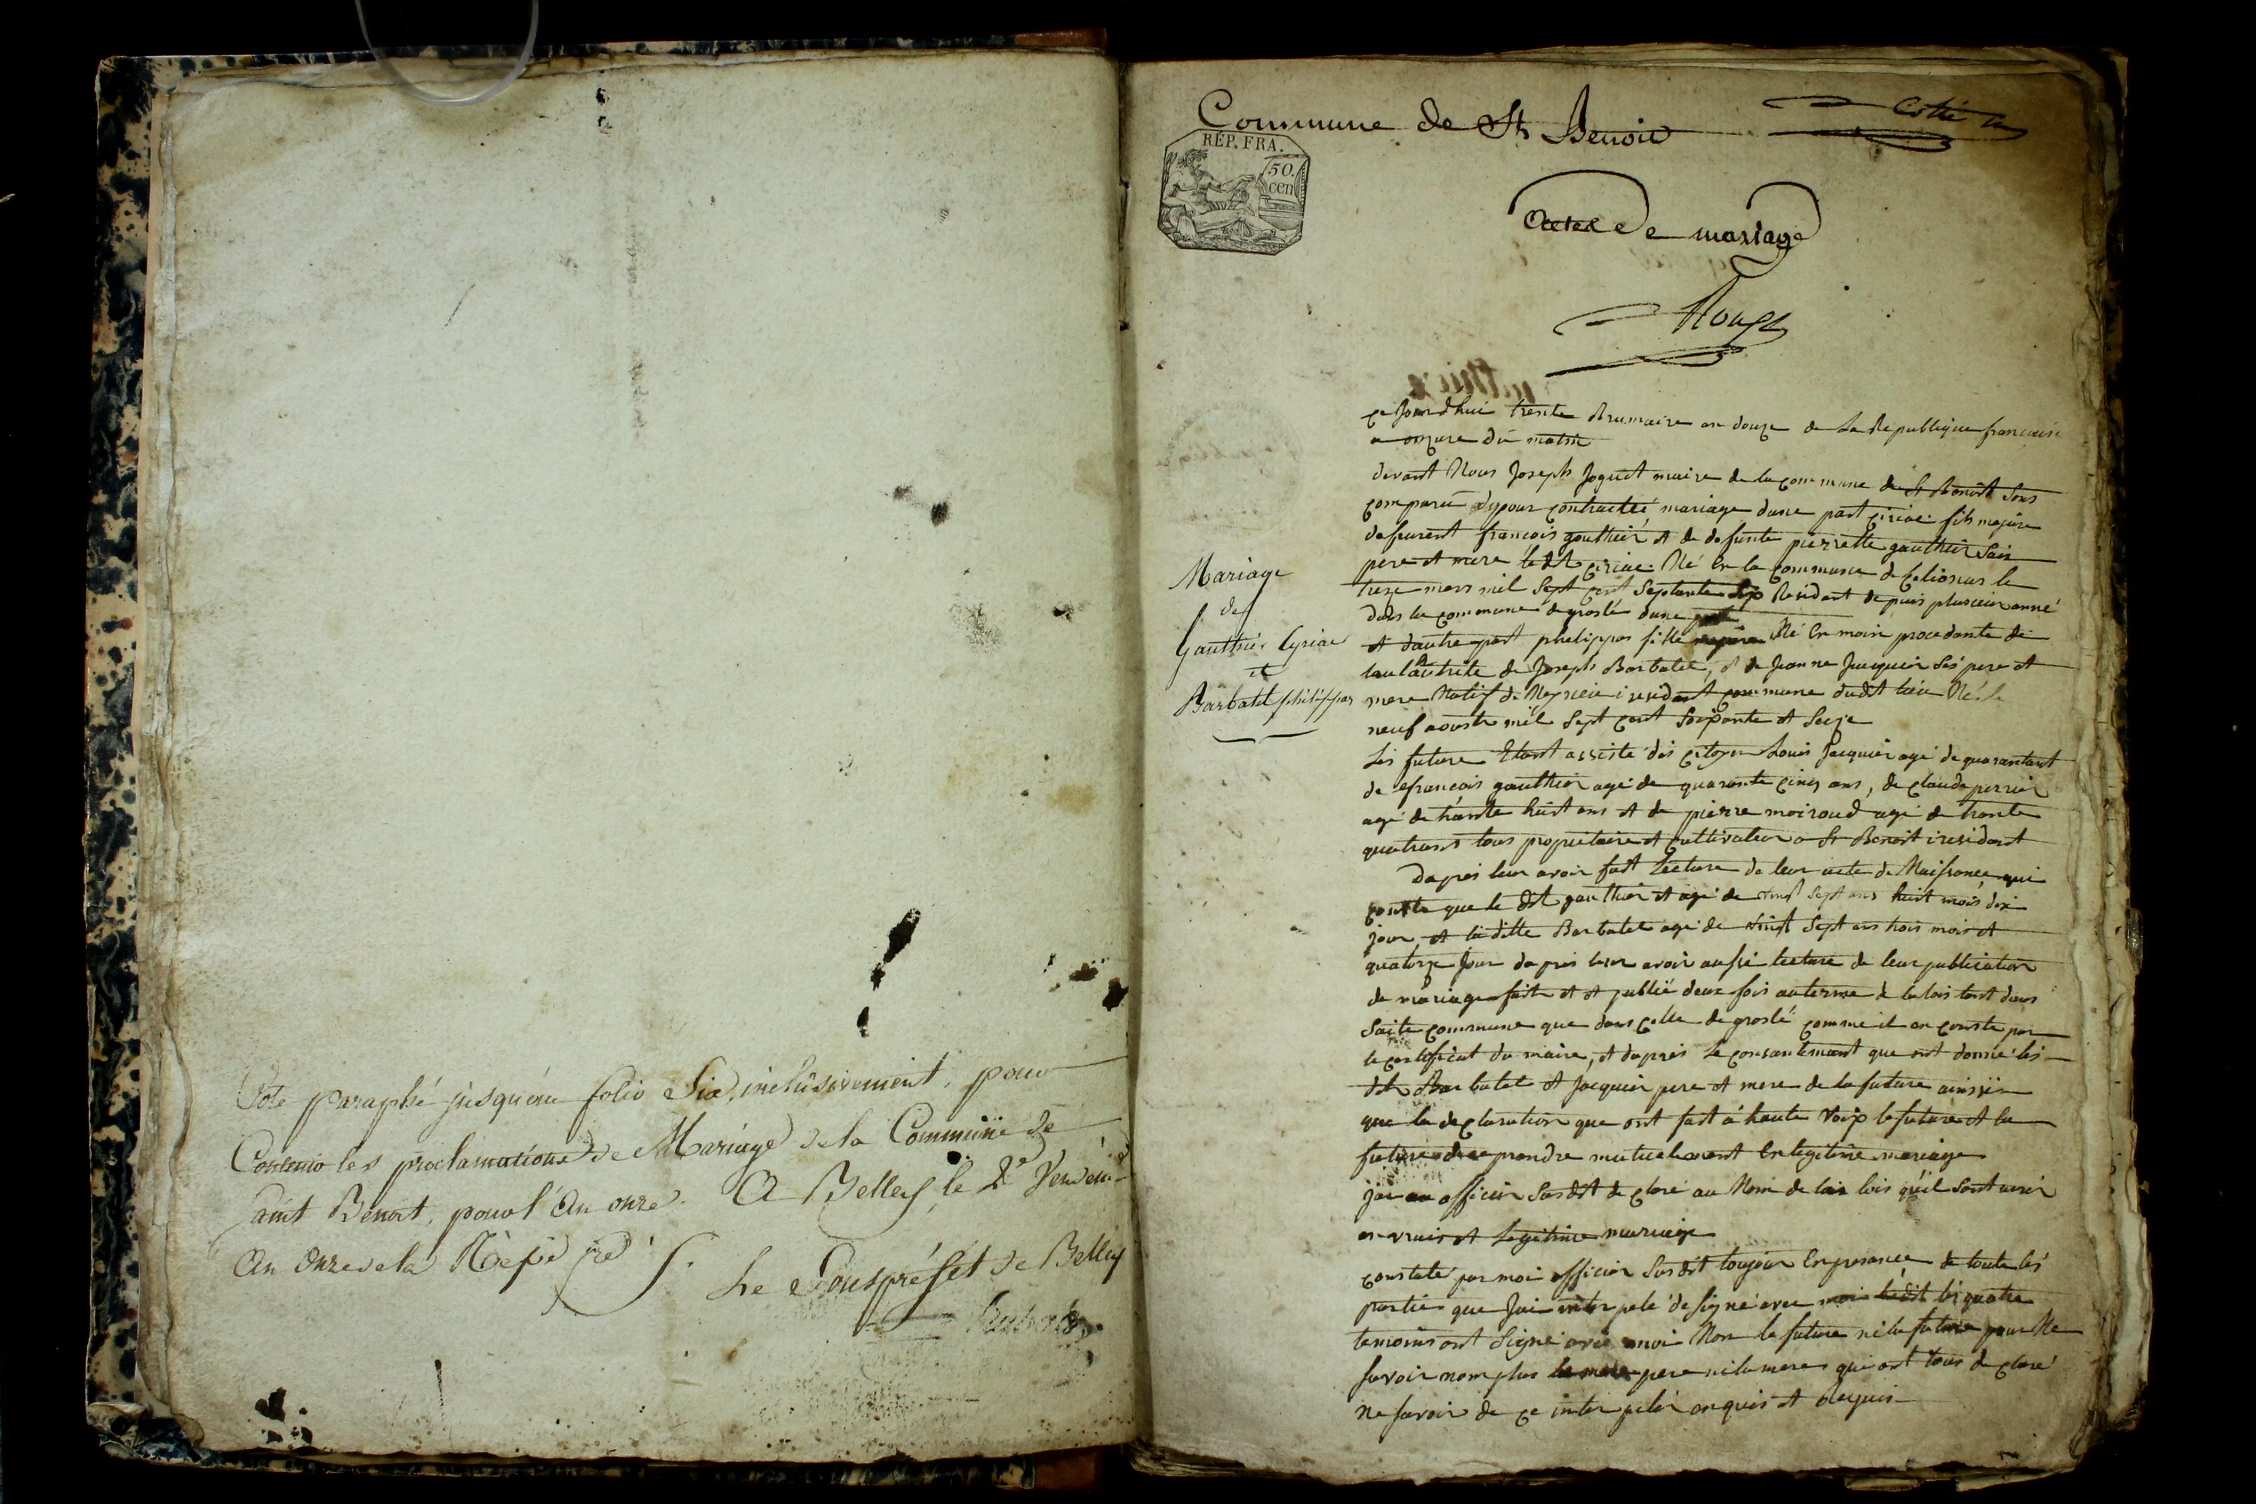 Coté paraphé jusqu'au folio Six, inclusivement, pour
Contenir les proclamations de Mariage de la Commune de
Saint Benoit, pour l'An onze. A Belley, le 2e Vendém.
An Onze de la Rép.
Le Souspréfet de Belley
Commune de St Benoit
RÉP. FRA.
50.
cen
Actes de mariage
Mariage
de
Gauthier Cyriac
et
Barbatel philippas
ce Jourdhui trente Brumaire an douze de La Republique francaise
a onzure du matin
devant Nous Joseph Joguet maire de la commune de St Benoit Sons
comparu pour contracté mariage dune part ciriac fils majure
defurent francois gauthier et de defunte pierrette gauthier Sais
pere et mere ledit ciriac Né En la commune de le
treze mars mil Sept cent Septante Six Residant depuis plusieur anné
dans la commune de groslé dune part
et dautre part phelippas fille majure Né En main procedante de
lauthrite de Joseph Barbatel, et de Jeanne Jacquier Sés pere et
mere Natif de iresidant commune dudit lieu Né le
neuf aouste mil Sept cent Soixante et Seize
Lés future Etant assisté dés citoyen Louis Jacquier agé de quarantant
de francois gauthier agé de quarante cinq ans, de claude perrier
agé de trante huit ans et de pierre moiroud agé de trante
quatrans tous propriétaire et cultivateur a St Benoit iresidant
Dapres leur avoir fait Lecture de leur acte de Naissance qui
conste que le dit gauthier et agé de vinst Sept ans huit mois dix
jour, et laditte Barbatel agé de vinst Sept ans trois mois et
quatorze Jour dapres leur avoir aussi lecture de leur publication
de mariage faite et et publié deux fois au terme de la lois tant dans
Saite commune que dans celle de groslé comme il en conste par
le certificat du maire, et dapres le consantemant que ont donné lés
dit Barbatel et Jacquier pere et mere de la future ainssi
que la declaration que ont fait a haute voix le future et la
future de prandre mutuelement En legitime mariage
jai officier Susdit declaré au Nom de la lois quil Sont unir
en vrais et Legitime mariage
constaté par moi officier Susdit toujour En presance de toute lés
partie que Jai inter pelé de signé avec moi lédit lés quatre
temoins ont Signé avec moi Non le future ni la future pour Ne
savoir nom plus pere ni la mere qui ont tous declaré
ne savoir de ce inter pelér enquis et Requis